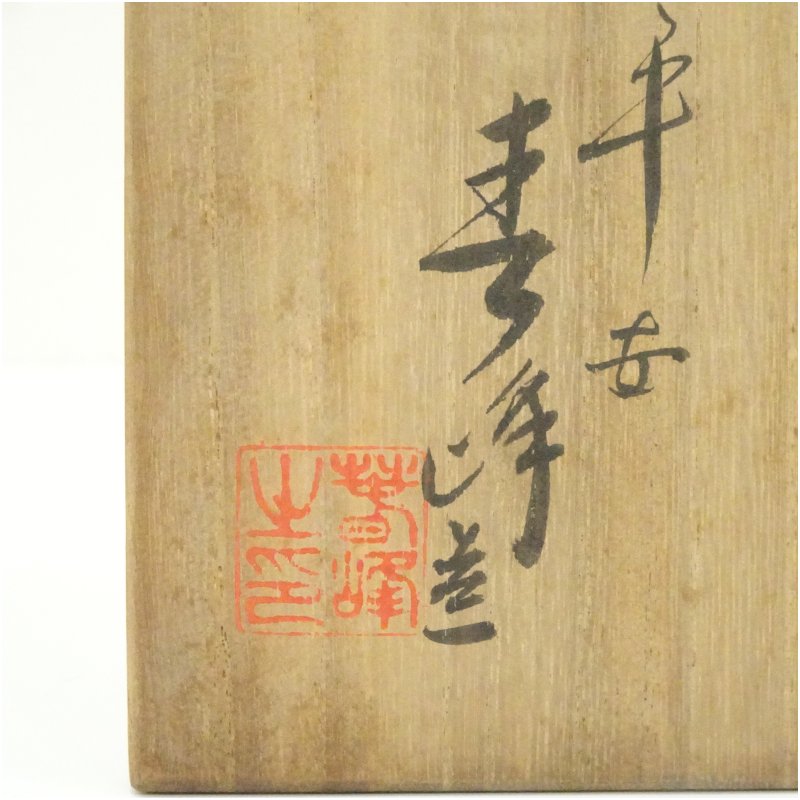 平安
春峰造
春峰
之印